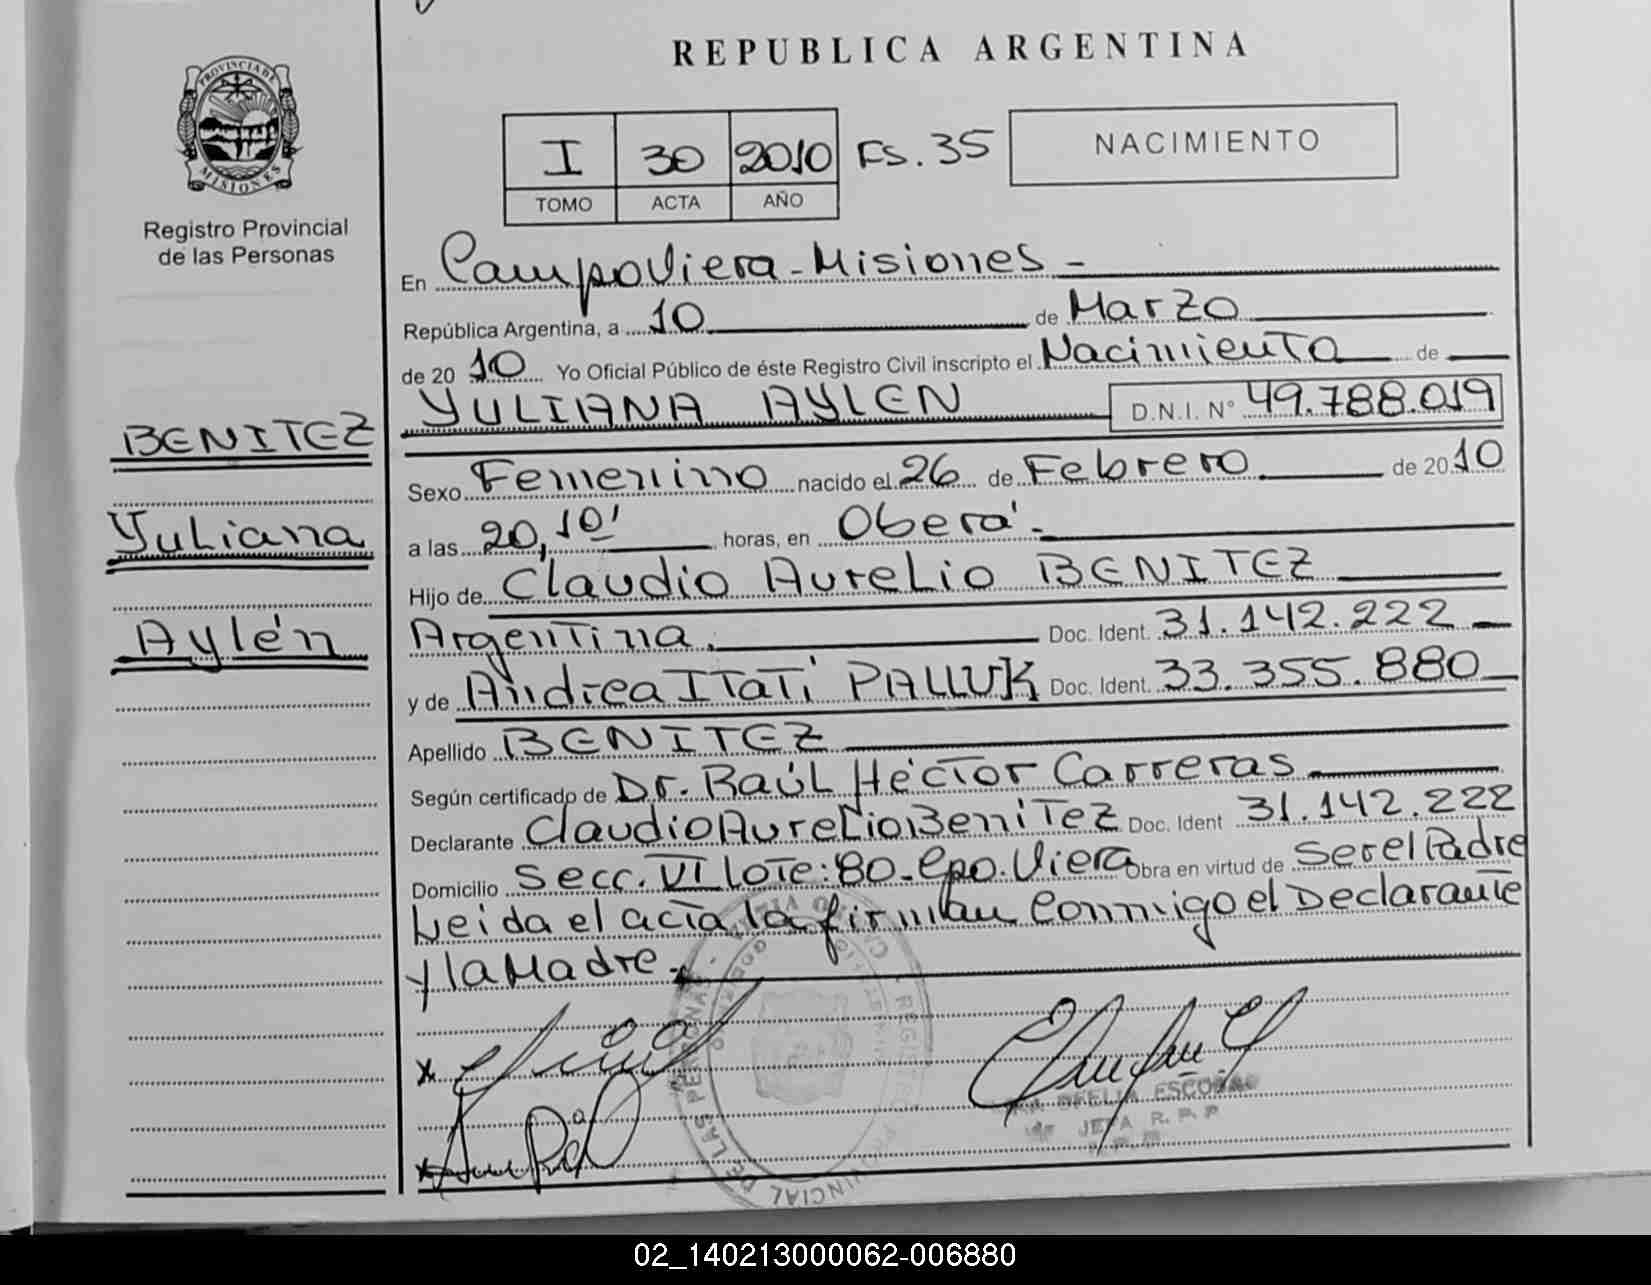 REPUBLICA ARGENTINA
PROVINCIA DE
MISIONES
Registro Provincial
de las Personas
I 30 2010 FS. 35
TOMO ACTA AÑO
NACIMIENTO
BENITEZ
Yuliana
Aylén
En Campo Viera - Misiones -
República Argentina, a 10 de Marzo
de 2010 Yo Oficial Público de éste Registro Civil inscripto el Nacimiento de
YULIANA AYLEN D.N.I. N° 49.788.019
Sexo Femenino nacido el 26 de Febrero de 2010
a las 20,10' horas, en Oberá.-
Hijo de Claudio Aurelio BENITEZ
Argentina. Doc. Ident. 31.142.222
y de Andrea Itatí PALLUK Doc. Ident. 33.355.880
Apellido BENITEZ
Según certificado de Dr. Raúl Héctor Carreras
Declarante Claudio Aurelio Benitez Doc. Ident 31.142.222
Domicilio Secc. VI Lote: 80 - Cpo. Viera Obra en virtud de Ser el Padre
Leida el acta la firman Conmigo el Declarante
y la Madre.-
OFELIA ESCOBAR
JEFA R. P. P
02_140213000062-006880